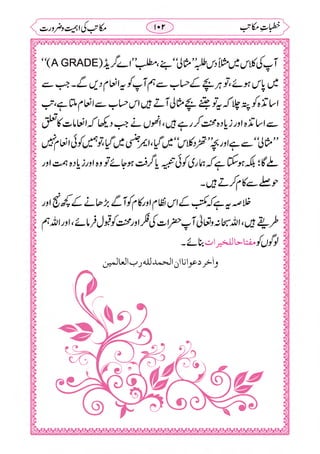 خطباتِ مکاتب
۱۰۲
مکاتب کی اہمیت وضرورت
آپ کی کلاس میں مثلاً دس طلبہ ’’مثالی‘‘ بنے، مطلب ’’اے گریڈ (A GRADE)‘‘
میں پاس ہوئے، تو ہر بچے کے حساب سے ہم آپ کو بھی انعام دیں گے۔ جب سے
اساتذہ کو پتہ چلا کہ یہ تو جتنے بچے مثالی آئیں اس حساب سے انعام ملتا ہے، تب
سے اساتذہ اور زیادہ محنت کر رہے ہیں، انھوں نے جب دیکھا کہ انعامات کا تعلق
’’مثالی‘‘ سے ہے اور بچہ ’’تھرڈ کلاس‘‘ میں گیا، ایمرجینسی میں گیا، تو ہمیں کوئی انعام نہیں
ملے گا؛ بلکہ ہوسکتا ہے کہ ہماری کوئی تنبیہی گرفت ہو جائے تو وہ اور زیادہ ہمت اور
حوصلے سے کام کرتے ہیں۔
خلاصہ یہ ہے کہ مکتب کے اس نظام اور کام کو آگے بڑھانے کے کچھ نہج اور
طریقے ہیں، اللہ سبحانہ وتعالیٰ آپ حضرات کی فکر اور محنت کو قبول فرمائے، اور اللہ ہم
لوگوں کو مفتاحاللخیرات بنائے۔
واٰخر دعوانا ان الحمدلله رب العالمین